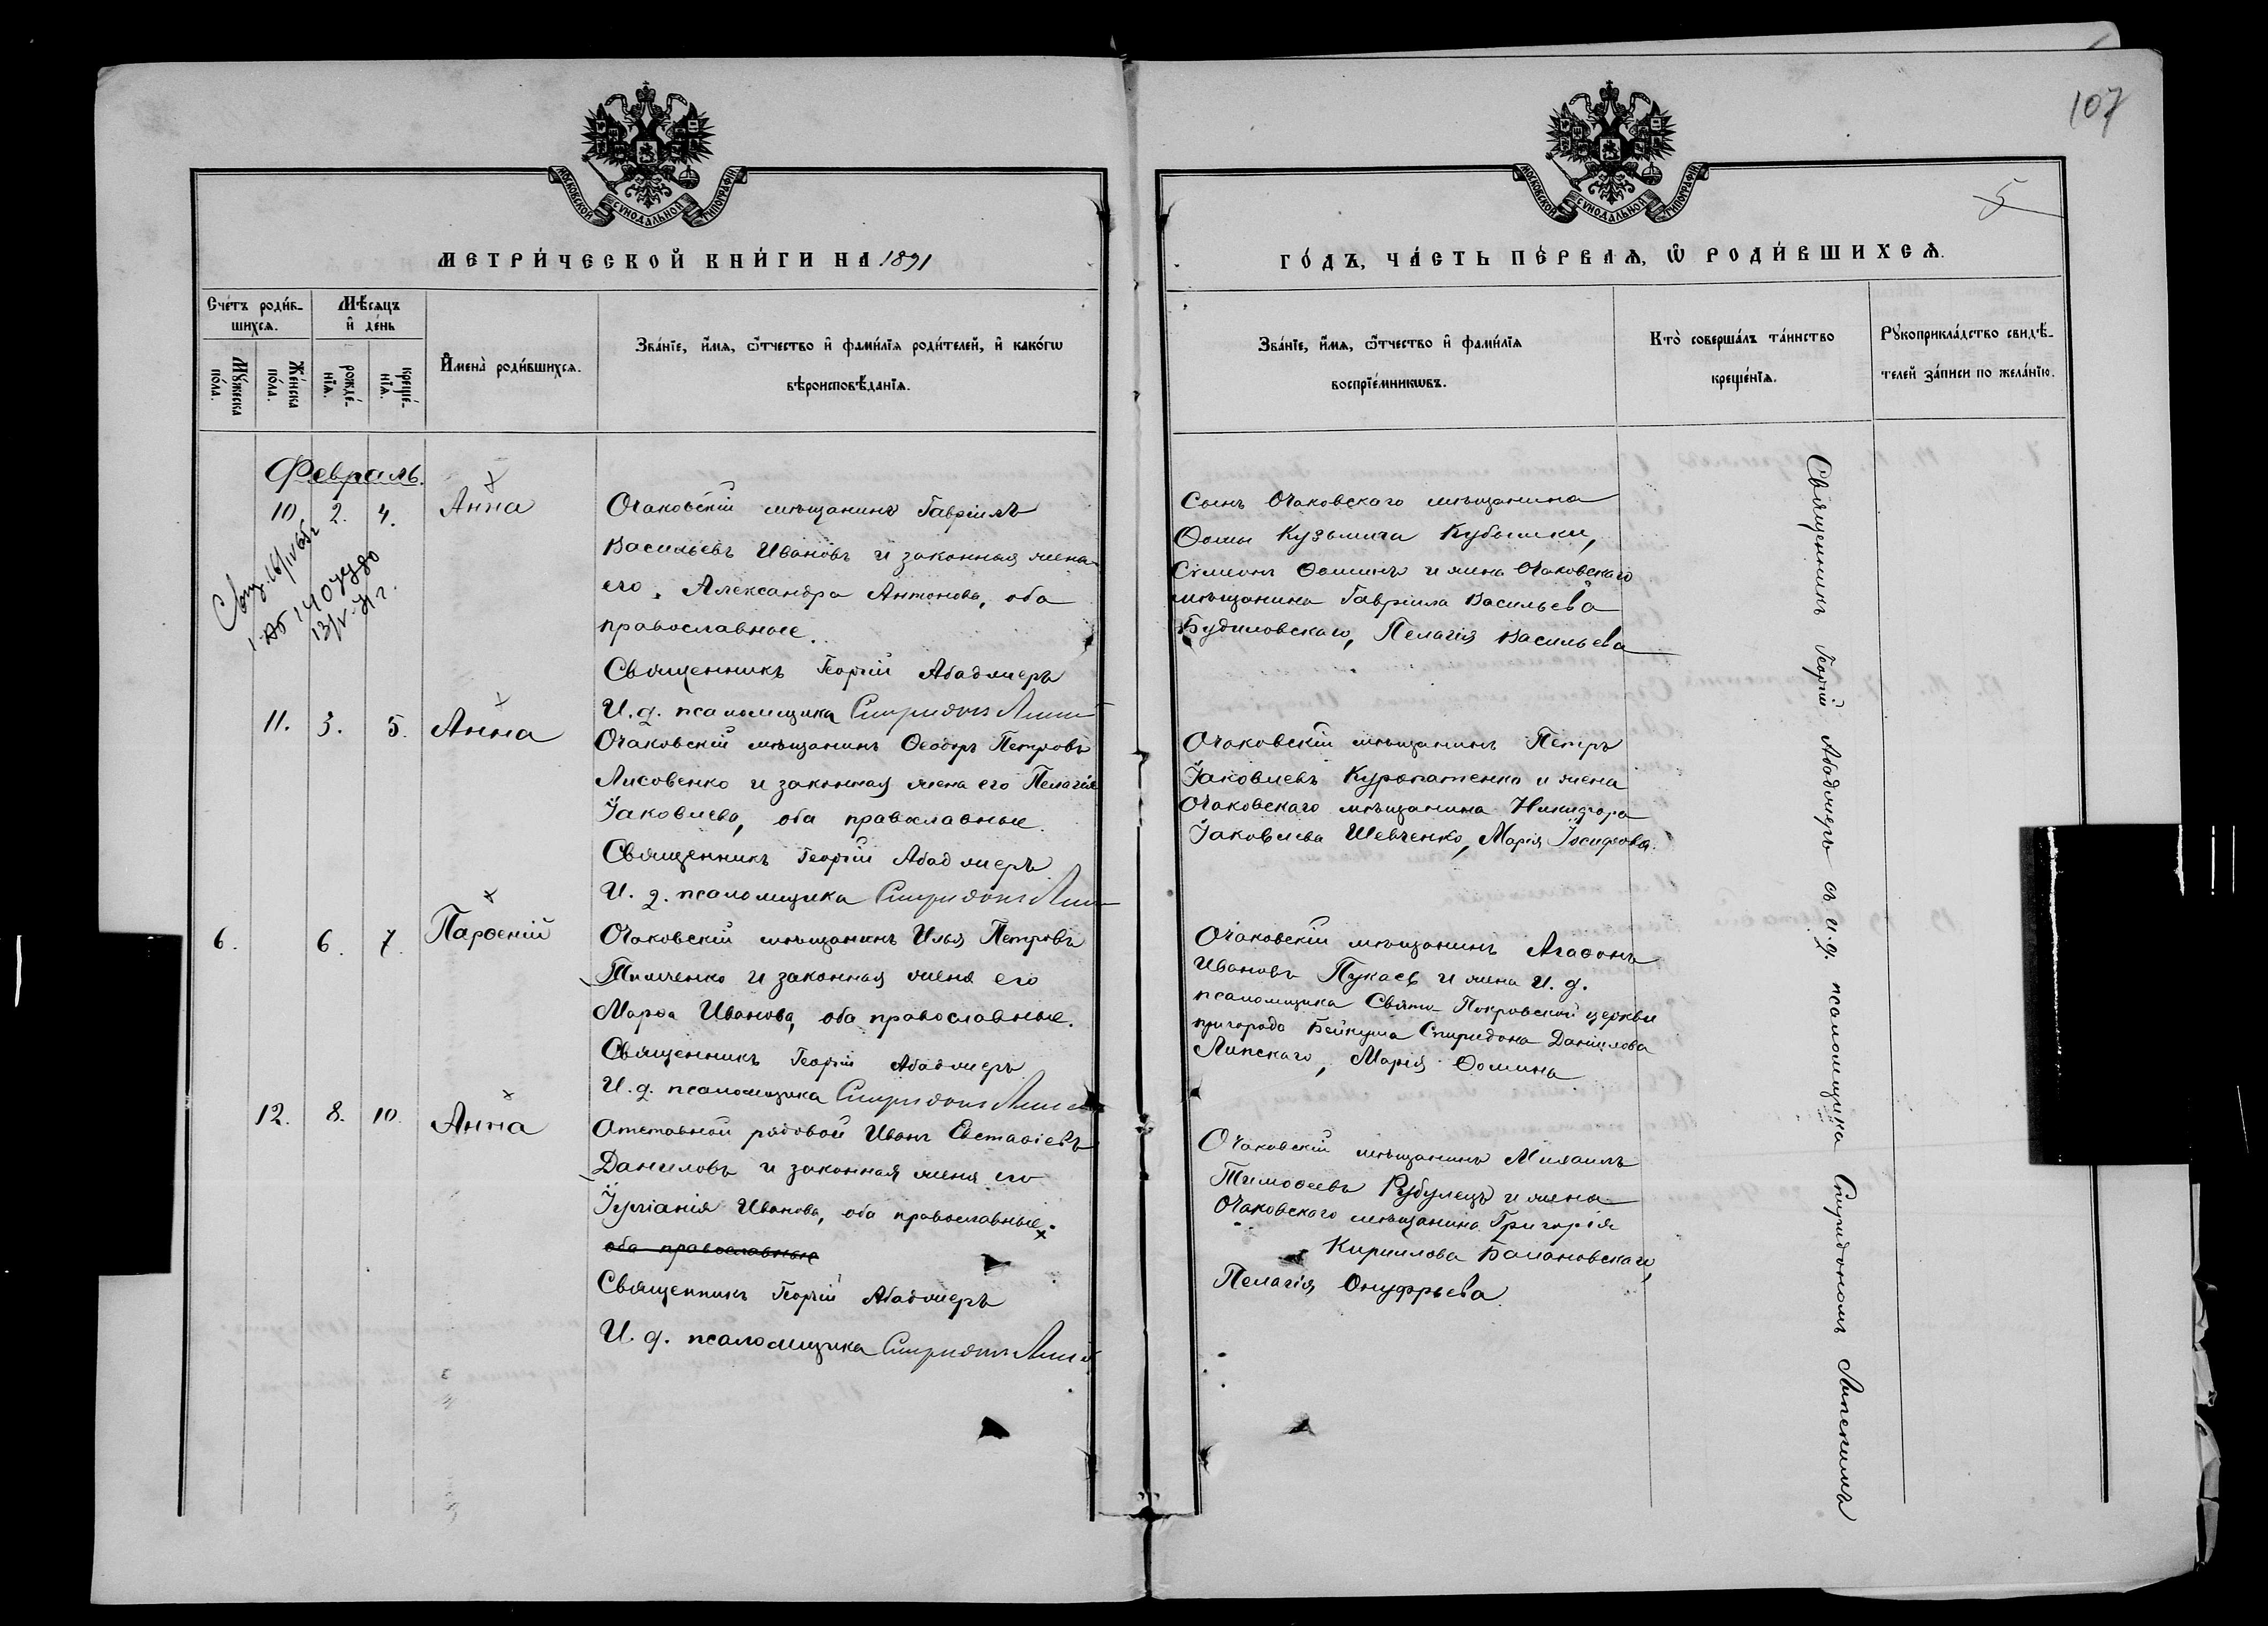 107
5
МОСКОВСКОЙ СѴНОДАЛЬНОЙ ТИПОГРАФІИ
МОСКОВСКОЙ СѴНОДАЛЬНОЙ ТИПОГРАФІИ
МЕТРИ́ЧЕСКОЙ КНИ́ГИ НА 1891
ГО́ДЪ, ЧА́СТЬ ПЕ́РВАЯ, Ѡ РОДИ́ВШИХСЯ.
Сче́тъ роди́в-
шихся.
Му́жеска
по́ла.
Же́нска
по́ла.
Мѣ́сяцъ
и де́нь
рожде́-
нїя.
креще́-
нїя.
И҆мена̀ роди́вшихся.
Зва́нїе, и҆́мя, ѻ҆́тчество и҆ фами́лїя роди́телей, и҆ како́гѡ
вѣроисповѣ́данїя.
Зва́нїе, и҆́мя, ѻ҆́тчество и҆ фами́лїя
воспрїе́мникѡвъ.
Кто̀ соверша́лъ та́инство
креще́нїя.
Рꙋкоприкла́дство свидѣ́-
телей за́писи по жела́нїю.
Февраль.
10 2. 4. Анна
Очаковскій мѣщанинъ Гавріилъ
Васильевъ Ивановъ и законная жена
его, Александра Антонова, оба
православные.
Священникъ Георгій Абаджеръ
И. д. псаломщика Спиридонъ
Сынъ Очаковскаго мѣщанина
Ѳомы Кузьмича Кубышки,
Сѵмеонъ Ѳоминъ и жена Очаковскаго
мѣщанина Гавріила Васильева
Будиловскаго, Пелагія Васильева
11. 3. 5. Анна
Очаковскій мѣщанинъ Ѳеодоръ Петровъ
Лисовенко и законная жена его Пелагія
Іаковлева, оба православные.
Священникъ Георгій Абаджеръ
И. д. псаломщика Спиридонъ
Очаковскій мѣщанинъ Петръ
Іаковлевъ Куропатенко и жена
Очаковскаго мѣщанина Никифора
Іаковлева Шевченко, Марія Іосифова.
6. 6. 7. Парѳеній
Очаковскій мѣщанинъ Илья Петровъ
Тимченко и законная жена его
Марѳа Иванова, оба православные.
Священникъ Георгій Абаджеръ
И. д. псаломщика Спиридонъ
Очаковскій мѣщанинъ Агаѳонъ
Ивановъ Пукаев и жена И. д.
псаломщика Свято-Покровской церкви
пригорода Бейкуша Спиридона Даніилова
Липскаго, Марія Ѳомина
12. 8. 10. Анна
Отставной рядовой Иванъ Евстаѳіевъ
Даниловъ и законная жена его
Іуліанія Иванова, оба православные.
оба православные
Священникъ Георгій Абаджеръ
И. д. псаломщика Спиридонъ
Очаковскій мѣщанинъ Михаилъ
Тимоѳеевъ Рубулецъ и жена
Очаковскаго мѣщанина Григорія
Кириллова Балановскаго,
Пелагія Онуфріева
Священникъ Георгій Абаджеръ съ и. д. псаломщика Спиридономъ Липскимъ